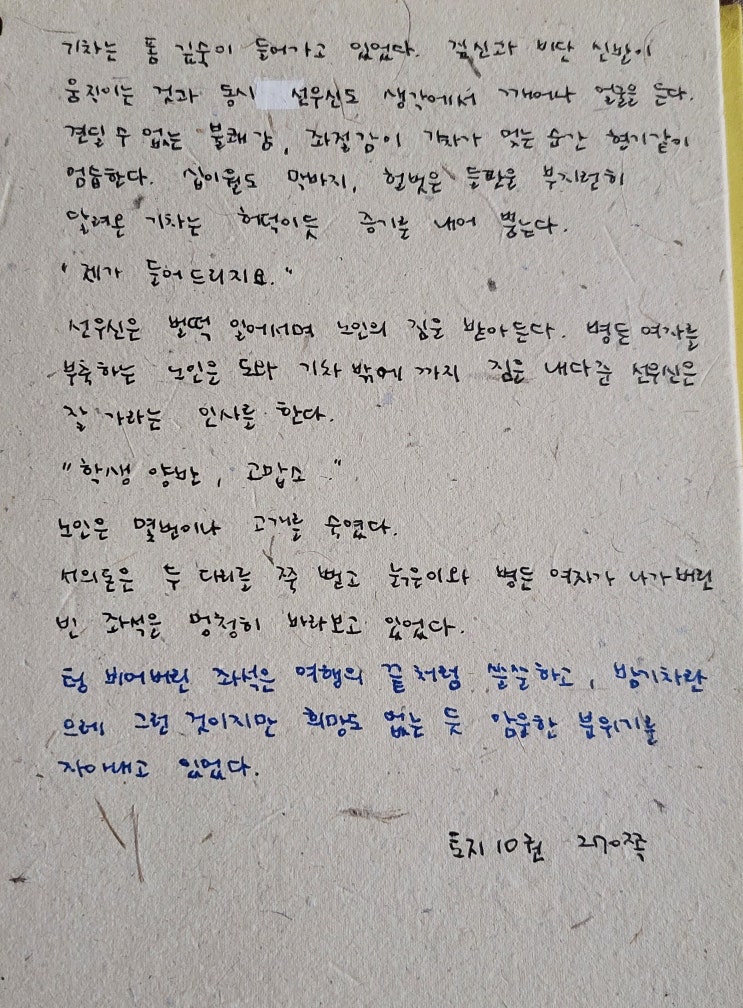 기차는 폼 깊숙이 들어가고 있었다. 짚신과 비단 신발이
움직이는 것과 동시 선우신도 생각에서 깨어나 얼굴을 든다.
견딜 수 없는 불쾌감, 좌절감이 기차가 멎는 순간 현기같이
엄습한다. 십이월도 막바지, 헐벗은 들판을 부지런히
달려온 기차는 허덕이듯 증기를 내어 뿜는다.
"제가 들어 드리지요."
선우신은 벌떡 일어서며 노인의 짐을 받아든다. 병든 여자를
부축하는 노인을 도와 기차 밖에 까지 짐을 내다준 선우신은
잘 가라는 인사를 한다.
"학생 양반, 고맙소"
노인은 몇번이나 고개를 숙였다.
서의돈은 두 다리를 쭉 뻗고 늙은이와 병든 여자가 나가버린
빈 좌석을 멍청히 바라보고 있었다.
텅 비어버린 좌석은 여행의 끝처럼 쓸쓸하고, 밤기차란
으레 그런 것이지만 희망도 없는 듯 암울한 분위기를
자아내고 있었다.
토지 10권 270쪽